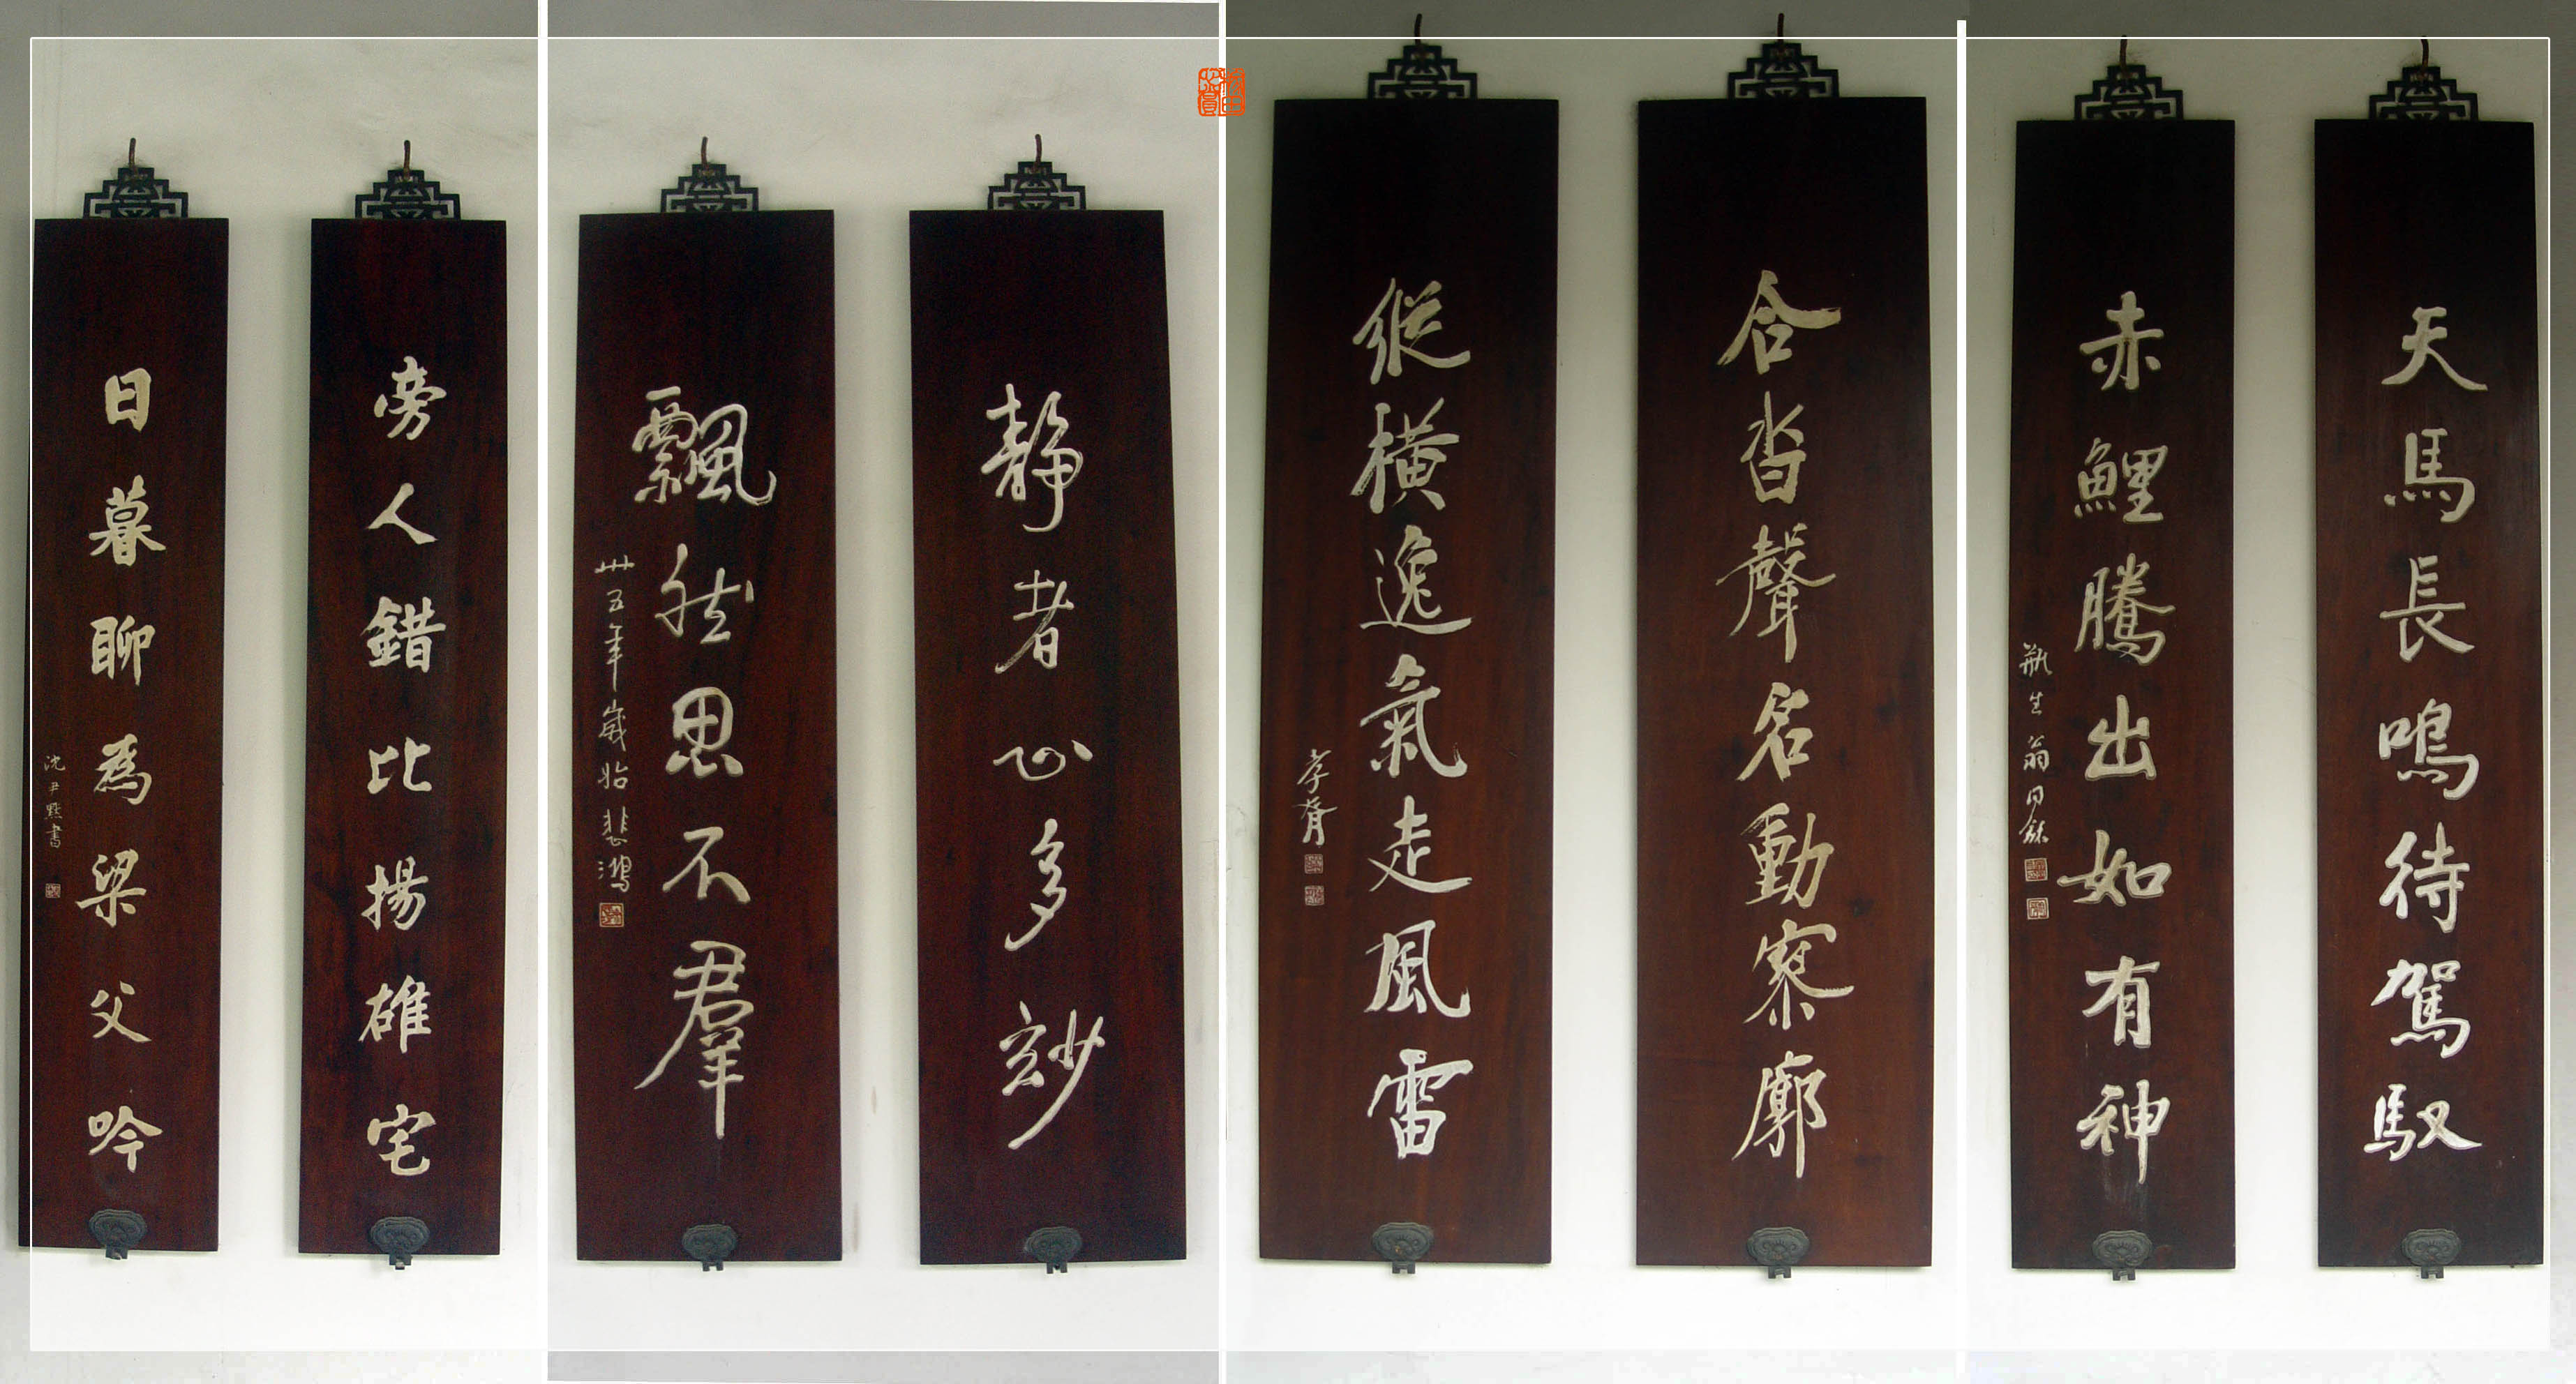 天馬長鳴待駕馭
赤鯉騰出如有神
瓶生翁同龢
合沓聲名動寥廓
縱橫逸氣走風雷
孝胥
靜者心多妙
飄然思不羣
卅五年歲始悲鴻
旁人錯比揚雄宅
日暮聊為梁父吟
沈尹默書